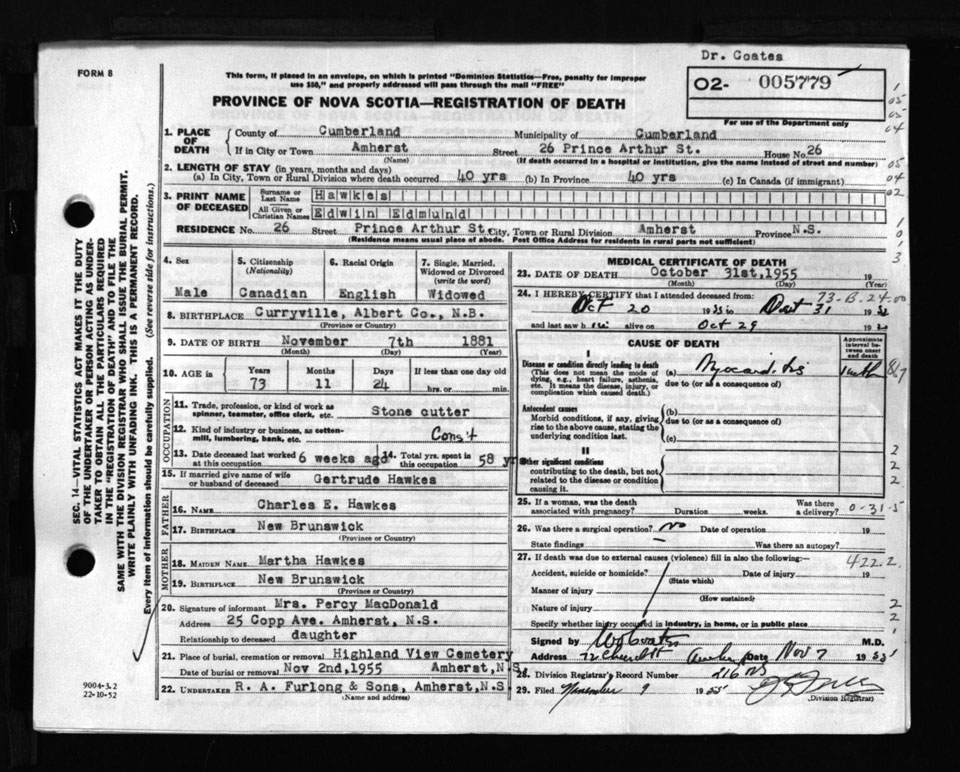 Dr. Coates
FORM 8
This form, if placed in an envelope, on which is printed "Dominion Statistics—Free, penalty for improper
use $50," and properly addressed will pass through the mail "FREE"
02- 005779
For use of the Department only
PROVINCE OF NOVA SCOTIA—REGISTRATION OF DEATH
1. PLACE OF DEATH County of Cumberland Municipality of Cumberland
If in City or Town Amherst Street 26 Prince Arthur St. House No. 26
(Name) (If death occurred in a hospital or institution, give the name instead of street and number)
2. LENGTH OF STAY (in years, months and days)
(a) In City, Town or Rural Division where death occurred 40 yrs (b) In Province 40 yrs (c) In Canada (if immigrant)
3. PRINT NAME OF DECEASED Surname or Last Name Hawkes
All Given or Christian Names Edwin Edmund
RESIDENCE No. 26 Street Prince Arthur St. City, Town or Rural Division Amherst Province N.S.
(Residence means usual place of abode. Post Office Address for residents in rural parts not sufficient)
4. Sex Male
5. Citizenship (Nationality) Canadian
6. Racial Origin English
7. Single, Married, Widowed or Divorced (write the word) Widowed
8. BIRTHPLACE Curryville, Albert Co., N.B.
(Province or Country)
9. DATE OF BIRTH November 7th 1881
(Month) (Day) (Year)
10. AGE in Years 73 Months 11 Days 24 If less than one day old hrs. or min.
OCCUPATION
11. Trade, profession or kind of work as spinner, teamster, office clerk, etc. Stone cutter
12. Kind of industry or business, as cotton-mill, lumbering, bank, etc. Cons't
13. Date deceased last worked at this occupation 6 weeks ago 14. Total yrs. spent in this occupation 58 yrs
15. If married give name of wife or husband of deceased Gertrude Hawkes
FATHER
16. NAME Charles E. Hawkes
17. BIRTHPLACE New Brunswick
(Province or Country)
MOTHER
18. MAIDEN NAME Martha Hawkes
19. BIRTHPLACE New Brunswick
(Province or Country)
20. Signature of informant Mrs. Percy MacDonald
Address 25 Copp Ave. Amherst, N.S.
Relationship to deceased daughter
21. Place of burial, cremation or removal Highland View Cemetery
Date of burial or removal Nov 2nd, 1955 Amherst, N.S.
22. UNDERTAKER R. A. Furlong & Sons, Amherst, N.S.
(Name and address)
MEDICAL CERTIFICATE OF DEATH
23. DATE OF DEATH October 31st, 1955 19
(Month) (Day)
73-B-24-00
24. I HEREBY CERTIFY that I attended deceased from
Oct 20 1955 to Oct 31 19
and last saw h im alive on Oct 29 19
CAUSE OF DEATH
Approximate interval between onset and death
I
Disease or condition directly leading to death
(This does not mean the mode of dying, e.g., heart failure, asthenia, etc. It means the disease, injury, or complication which caused death.)
(a) Myocarditis
due to (or as a consequence of)
Antecedent causes
Morbid conditions, if any, giving rise to the above cause, stating the underlying condition last.
(b)
due to (or as a consequence of)
(c)
II
Other significant conditions
contributing to the death, but not related to the disease or condition causing it.
25. If a woman, was the death associated with pregnancy? Duration weeks. Was there a delivery?
0-31-5
26. Was there a surgical operation? No Date of operation 19
State findings Was there an autopsy?
27. If death was due to external causes (violence) fill in also the following:
422.2
Accident, suicide or homicide? Date of injury 19
(State which)
Manner of injury
(How sustained)
Nature of injury
Specify whether injury occurred in industry, in home, or in public place
Signed by M.D.
Address 72 Church St Amherst Date Nov 7 1955
28. Division Registrar's Record Number
29. Filed November 9 1955
(Division Registrar)
SEC. 14—VITAL STATISTICS ACT MAKES IT THE DUTY
OF THE UNDERTAKER OR PERSON ACTING AS UNDER-
TAKER TO OBTAIN ALL THE PARTICULARS REQUIRED
IN THE "REGISTRATION OF DEATH" AND TO FILE THE
SAME WITH THE DIVISION REGISTRAR WHO SHALL ISSUE THE BURIAL PERMIT.
WRITE PLAINLY WITH UNFADING INK. THIS IS A PERMANENT RECORD.
Every item of information should be carefully supplied. (See reverse side for instructions.)
9004-3.2
22-10-52